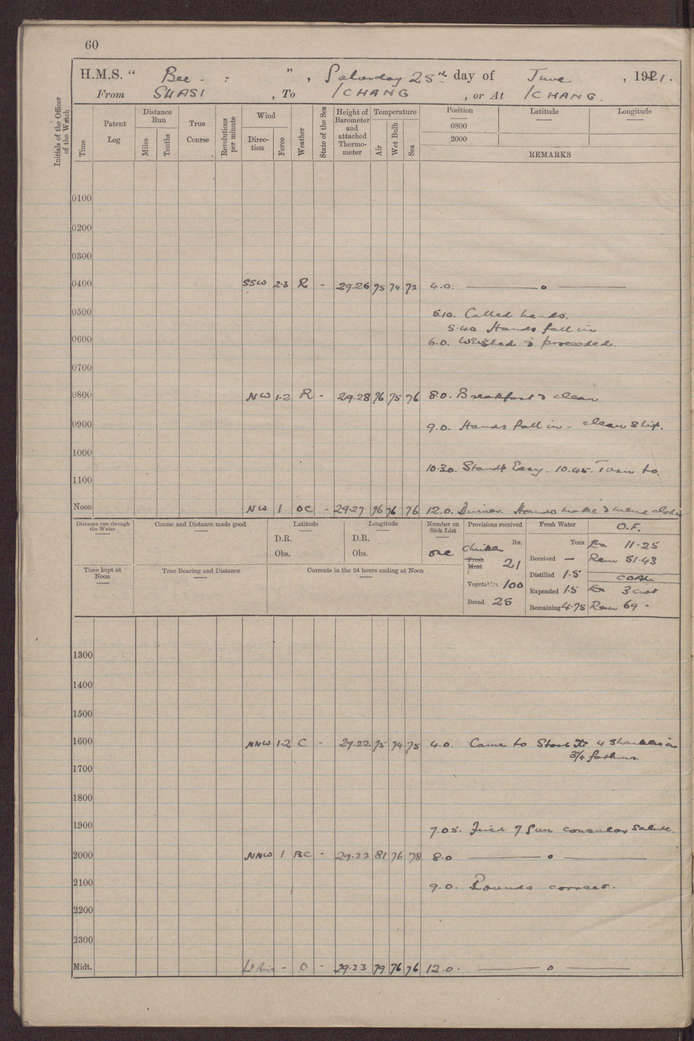 60
H.M.S. " Bee - : " , Saturday 25th day of June , 1921.
From SHASI , To ICHANG , or At ICHANG.
Initials of the Officer of the Watch
Time
Patent Log
Distance Run
Miles
Tenths
True Course
Revolutions per minute
Wind
Direction
Force
Weather
State of the Sea
Height of Barometer and attached Thermometer
Temperature
Air
Wet Bulb
Sea
Position Latitude Longitude
0800
2000
REMARKS
0100
0200
0300
0400 SSW 2-3 R - 29.26 75 74 73 4.0. — o —
0500 5.10. Called hands.
5.40 Hands fall in
0600 6.0. Weighed & proceeded.
0700
0800 NW 1-2 R - 29.28 76 75 76 8.0. Breakfast & clean
0900 9.0. Hands fall in - clean ship.
1000
10.30. Stand Easy. 10.45. Turn to
1100
Noon NW 1 OC - 29.27 76 76 76 12.0. Dinner. Hands make & mend clothes
Distance run through the Water
Course and Distance made good
Latitude
D.R.
Obs.
Longitude
D.R.
Obs.
Number on Sick List
one
Provisions received
lbs.
chicken
Fresh Meat 21
Vegetables 100
Bread 25
Fresh Water
Tons
Received —
Distilled 1.5
Expended 1.5
Remaining 4.75
O.F.
Ex 11-25
Rem 51.43
COAL
Ex 3 cwt
Rem 69 -
Time kept at Noon
True Bearing and Distance
Currents in the 24 hours ending at Noon
1300
1400
1500
1600 NNW 1-2 C - 29.22 75 74 75 4.0. Came to Stock 4 shackles in
3¼ fathoms
1700
1800
1900
7.05. Fired 7 Gun consular salute.
2000 NNW 1 BC - 29.22 81 76 78 8.0 — o —
2100
9.0. Rounds correct.
2200
2300
Midt. Lt Airs - O - 29.23 79 76 76 12.0. — o —